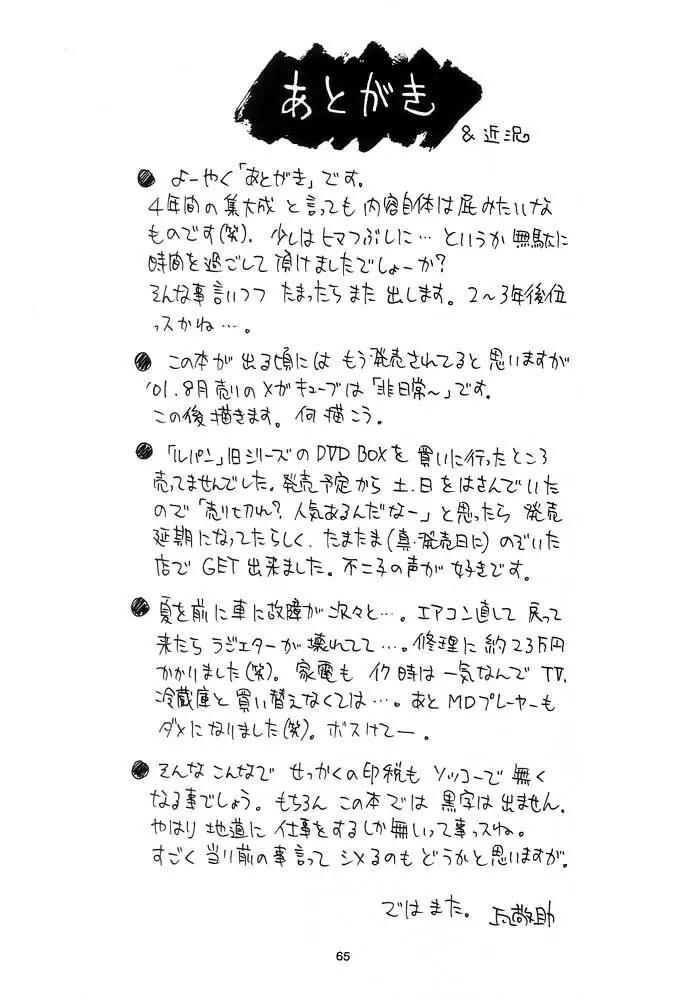 あとがき
&近況
● よーやく「あとがき」です。
4年間の集大成 と言っても 内容自体は屁みたいな
ものです(笑). 少しはヒマつぶしに… というか 無駄に
時間を過ごして頂けましたでしょーか?
そんな事言いつつ たまったら また 出します。2〜3年後位
っスかね…。
● この本が 出る頃には もう発売されてると 思いますが
'01.8月売りのメガキューブは「非日常〜」です。
この後描きます。何描こう。
● 「ルパン」旧シリーズのDVD BOXを 買いに行ったところ
売ってませんでした。発売予定から 土.日をはさんでいた
ので「売り切れ? 人気あるんだなー」と思ったら 発売
延期になってたらしく. たまたま(真・発売日に)のぞいた
店で GET出来ました。不二子の声が 好きです。
● 夏を前に車に故障が次々と…。エアコン直して 戻って
来たら ラジエターが 壊れてて…。修理に約23万円
かかりました(笑)。家電も イク時は 一気なんで TV.
冷蔵庫と 買い替えなくては…。あと MDプレーヤーも
ダメになりました(笑)。ボスけてー。
● そんな こんなで せっかくの印税も ソッコーで 無く
なる事でしょう。もちろん この本では 黒字は 出ません.
やはり 地道に 仕事をするしか無いって事っスね。
すごく 当り前の事言って シメるのも どうかと思いますが。
ではまた。
65